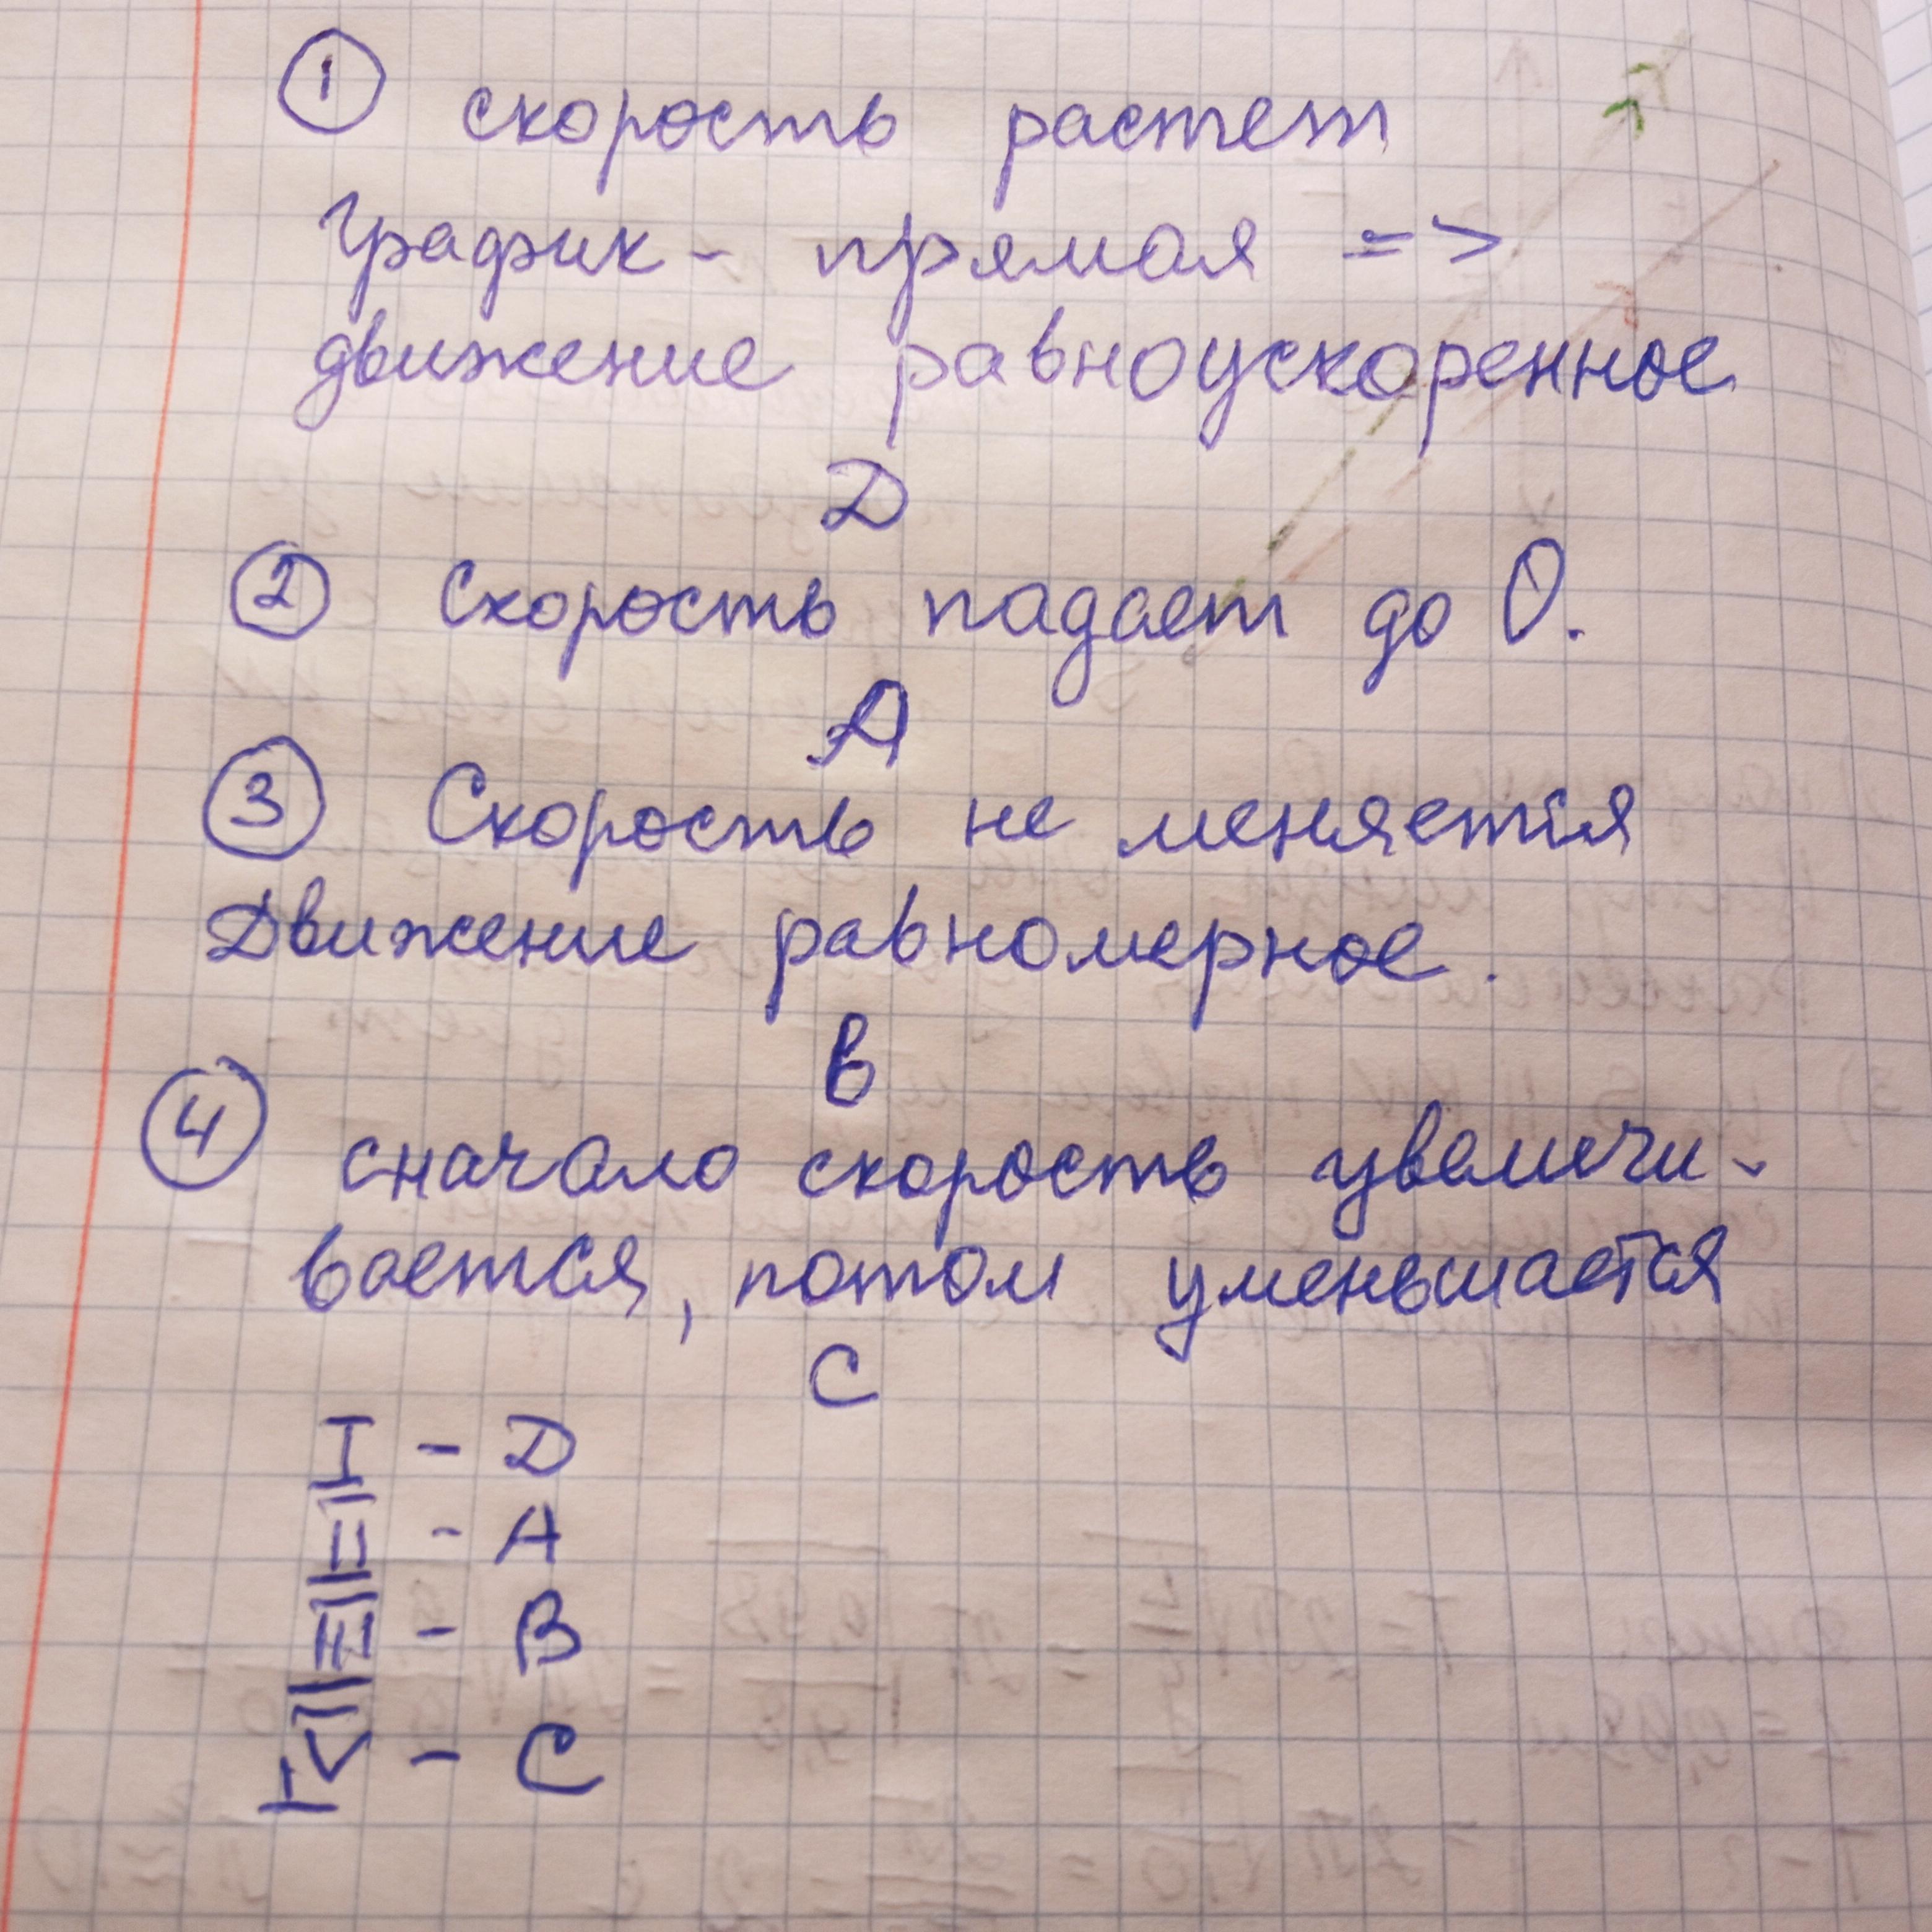 ① скорость растет
График - прямая =>
движение равноускоренное
D
② Скорость падает до 0.
A
③ Скорость не меняется
Движение равномерное.
B
④ сначало скорость увеличи-
вается, потом уменьшается
C
I - D
II - A
III - B
IV - C